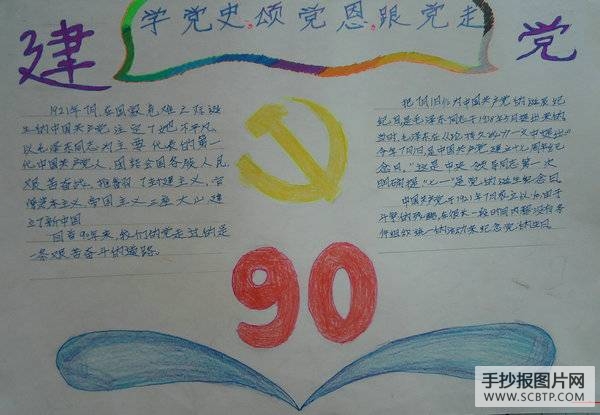 学党史、颂党恩、跟党走
建
党
1921年7月,在国家危难之际诞
生的中国共产党,注定了她不平凡。
以毛泽东同志为主要代表的第一
代中国共产党人,团结全国各族人民
艰苦奋斗、推翻了封建主义、官
僚资本主义、帝国主义三座大山建
立了新中国
回首90年来,我们的党走过的是
一条艰苦奋斗的道路。
把7月1日作为中国共产党的诞生纪
纪日是毛泽东同志于1938年5月提出来的
当时,毛泽东在《论持久战》一文中提出"
今年七月一日,是中国共产党建立十七周年纪
念日。"这是中央领导同志第一次
明确提"七一"是党的诞生纪念日。
中国共产党于1921年7月成立以后,由于
斗争的残酷,在很长一段时间内都没有条
件组织统一的活动来纪念党的生日。
90
手抄报图片网
WWW.SCBTP.COM